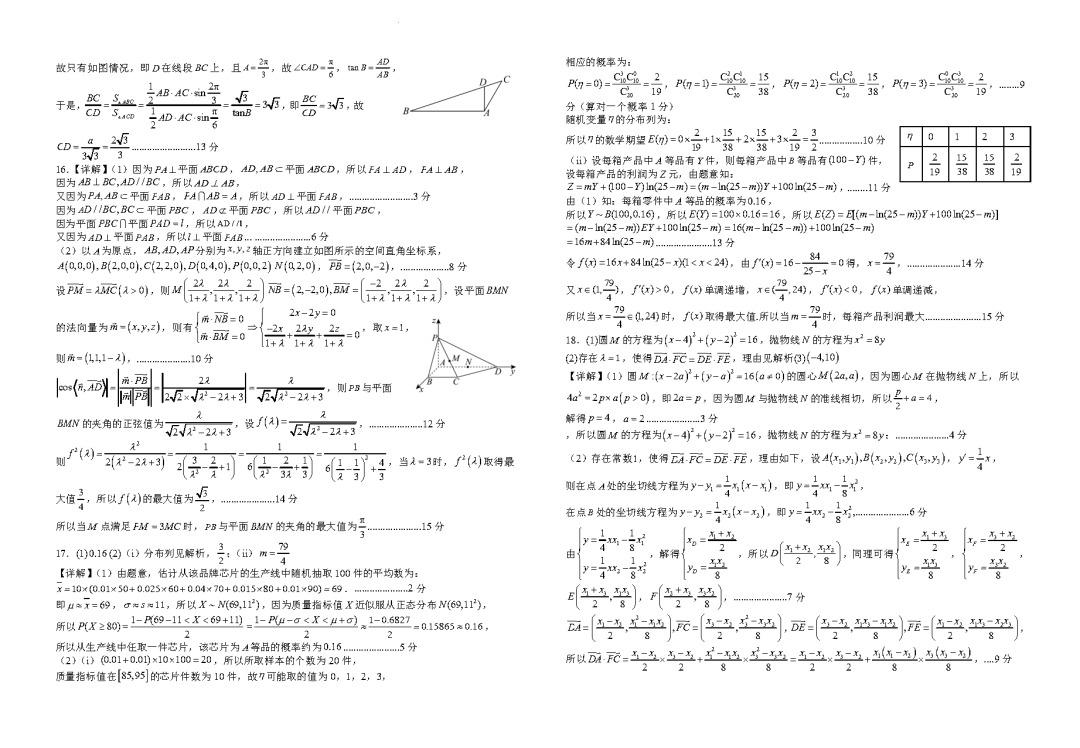 故只有如图情况，即 D 在线段 BC 上，且 A=2π/3，故∠CAD=π/6，tan B=AD/AB，
于是，BC/CD=S△ABC/S△ACD=(1/2 AB·AC·sin 2π/3)/(1/2 AD·AC·sin π/6)=√3/tanB=3√3，即BC/CD=3√3，故
CD=a/(3√3)=2√3/3........................13 分
D C
B A
16.【详解】（1）因为 PA⊥平面 ABCD，AD, AB⊂平面 ABCD，所以 FA⊥AD，FA⊥AB，
因为 AB⊥BC, AD//BC，所以 AD⊥AB，
又因为 PA, AB⊂平面 FAB，FA∩AB=A，所以 AD⊥平面 FAB，......................3 分
因为 AD//BC, BC⊂平面 PBC，AD⊄平面 PBC，所以 AD//平面 PBC，
因为平面 PBC∩平面 PAD=l，所以 AD//l，
又因为 AD⊥平面 PAB，所以 l⊥平面 FAB... ......................6 分
（2）以 A 为原点，AB, AD, AP 分别为 x, y, z 轴正方向建立如图所示的空间直角坐标系，
A(0,0,0), B(2,0,0), C(2,2,0), D(0,4,0), P(0,0,2) N(0,2,0)，PB=(2,0,-2)，..................8 分
设 PM=λMC(λ>0)，则 M(2λ/(1+λ), 2λ/(1+λ), 2/(1+λ)) NB=(2,-2,0), BM=(-2/(1+λ), 2λ/(1+λ), 2/(1+λ))，设平面 BMN
的法向量为 m=(x,y,z)，则有 {m·NB=0 m·BM=0 ⇒ {2x-2y=0 -2x/(1+λ)+2λy/(1+λ)+2z/(1+λ)=0，取 x=1，
则 m=(1,1,1-λ)，...................10 分
z P A M N D y B C x
|cos⟨n,AD⟩|=|m·PB|/|m||PB|=2λ/(2√2×√(λ²-2λ+3))=λ/(√2√(λ²-2λ+3))，则 PB 与平面
BMN 的夹角的正弦值为 λ/(√2√(λ²-2λ+3))，设 f(λ)=λ/(√2√(λ²-2λ+3))，..................12 分
则 f²(λ)=λ²/(2(λ²-2λ+3))=1/(2(3/λ²-2/λ+1))=1/(6(1/λ²-2/3λ+1/3))=1/(6(1/λ-1/3)²+4/3)，当 λ=3 时，f²(λ) 取得最
大值 3/4，所以 f(λ) 的最大值为 √3/2，...................14 分
所以当 M 点满足 FM=3MC 时，PB 与平面 BMN 的夹角的最大值为 π/3..................15 分
17. (1) 0.16 (2)（i）分布列见解析，3/2；(ii) m=79/4
【详解】（1）由题意，估计从该品牌芯片的生产线中随机抽取 100 件的平均数为：
x=10×(0.01×50+0.025×60+0.04×70+0.015×80+0.01×90)=69. ....................2 分
即 μ≈x=69，σ≈s≈11，所以 X~N(69,11²)，因为质量指标值 X 近似服从正态分布 N(69,11²)，
所以 P(X≥80)=(1-P(69-11<X<69+11))/2=(1-P(μ-σ<X<μ+σ))/2≈(1-0.6827)/2=0.15865≈0.16，
所以从生产线中任取一件芯片，该芯片为 A 等品的概率约为 0.16....................5 分
（2）（i）(0.01+0.01)×10×100=20，所以所取样本的个数为 20 件，
质量指标值在[85,95]的芯片件数为 10 件，故 η 可能取的值为 0，1，2，3，
相应的概率为：
P(η=0)=C³₁₀C⁰₁₀/C³₂₀=2/19，P(η=1)=C²₁₀C¹₁₀/C³₂₀=15/38，P(η=2)=C¹₁₀C²₁₀/C³₂₀=15/38，P(η=3)=C⁰₁₀C³₁₀/C³₂₀=2/19，........9
分（算对一个概率 1 分）
随机变量 η 的分布列为：
所以 η 的数学期望 E(η)=0×2/19+1×15/38+2×15/38+3×2/19=3/2...............10 分
η 0 1 2 3
P 2/19 15/38 15/38 2/19
（ii）设每箱产品中 A 等品有 Y 件，则每箱产品中 B 等品有 (100-Y) 件，
设每箱产品的利润为 Z 元，由题意知：
Z=mY+(100-Y)ln(25-m)=(m-ln(25-m))Y+100ln(25-m)，........11 分
由（1）知：每箱零件中 A 等品的概率为 0.16，
所以 Y~B(100,0.16)，所以 E(Y)=100×0.16=16，所以 E(Z)=E[(m-ln(25-m))Y+100ln(25-m)]
=(m-ln(25-m))EY+100ln(25-m)=16(m-ln(25-m))+100ln(25-m)
=16m+84ln(25-m).....................13 分
令 f(x)=16x+84ln(25-x)(1<x<24)，由 f'(x)=16-84/(25-x)=0 得，x=79/4，...................14 分
又 x∈(1,79/4)，f'(x)>0，f(x) 单调递增，x∈(79/4,24)，f'(x)<0，f(x) 单调递减，
所以当 x=79/4∈(1,24) 时，f(x) 取得最大值.所以当 m=79/4 时，每箱产品利润最大...................15 分
18．(1)圆 M 的方程为 (x-4)²+(y-2)²=16，抛物线 N 的方程为 x²=8y
(2)存在 λ=1，使得 DA·FC=DE·FE，理由见解析(3)(-4,10)
【详解】（1）圆 M:(x-2a)²+(y-a)²=16(a≠0) 的圆心 M(2a,a)，因为圆心 M 在抛物线 N 上，所以
4a²=2p×a(p>0)，即 2a=p，因为圆 M 与抛物线 N 的准线相切，所以 p/2+a=4，
解得 p=4，a=2..................3 分
，所以圆 M 的方程为 (x-4)²+(y-2)²=16，抛物线 N 的方程为 x²=8y；..................4 分
（2）存在常数1，使得 DA·FC=DE·FE，理由如下，设 A(x₁,y₁), B(x₂,y₂), C(x₃,y₃)，y'=1/4x，
则在点 A 处的坐切线方程为 y-y₁=1/4x₁(x-x₁)，即 y=1/4xx₁-1/8x₁²，
在点 B 处的坐切线方程为 y-y₂=1/4x₂(x-x₂)，即 y=1/4xx₂-1/8x₂²,..................6 分
由 {y=1/4xx₁-1/8x₁² y=1/4xx₂-1/8x₂²，解得 {x_D=(x₁+x₂)/2 y_D=x₁x₂/8，所以 D((x₁+x₂)/2, x₁x₂/8)，同理可得 {x_E=(x₁+x₃)/2 y_E=x₁x₃/8，{x_F=(x₃+x₂)/2 y_F=x₃x₂/8，
E((x₁+x₃)/2, x₁x₃/8)，F((x₃+x₂)/2, x₃x₂/8)，..................7 分
DA=((x₁-x₂)/2, (x₁²-x₁x₂)/8), FC=((x₃-x₂)/2, (x₃²-x₃x₂)/8)，DE=((x₃-x₂)/2, (x₁x₃-x₁x₂)/8), FE=((x₁-x₂)/2, (x₁x₃-x₃x₂)/8)，
所以 DA·FC=(x₁-x₂)/2×(x₃-x₂)/2+(x₁²-x₁x₂)/8×(x₃²-x₃x₂)/8=(x₁-x₂)/2×(x₃-x₂)/2+x₁(x₁-x₂)/8×x₃(x₃-x₂)/8，....9 分